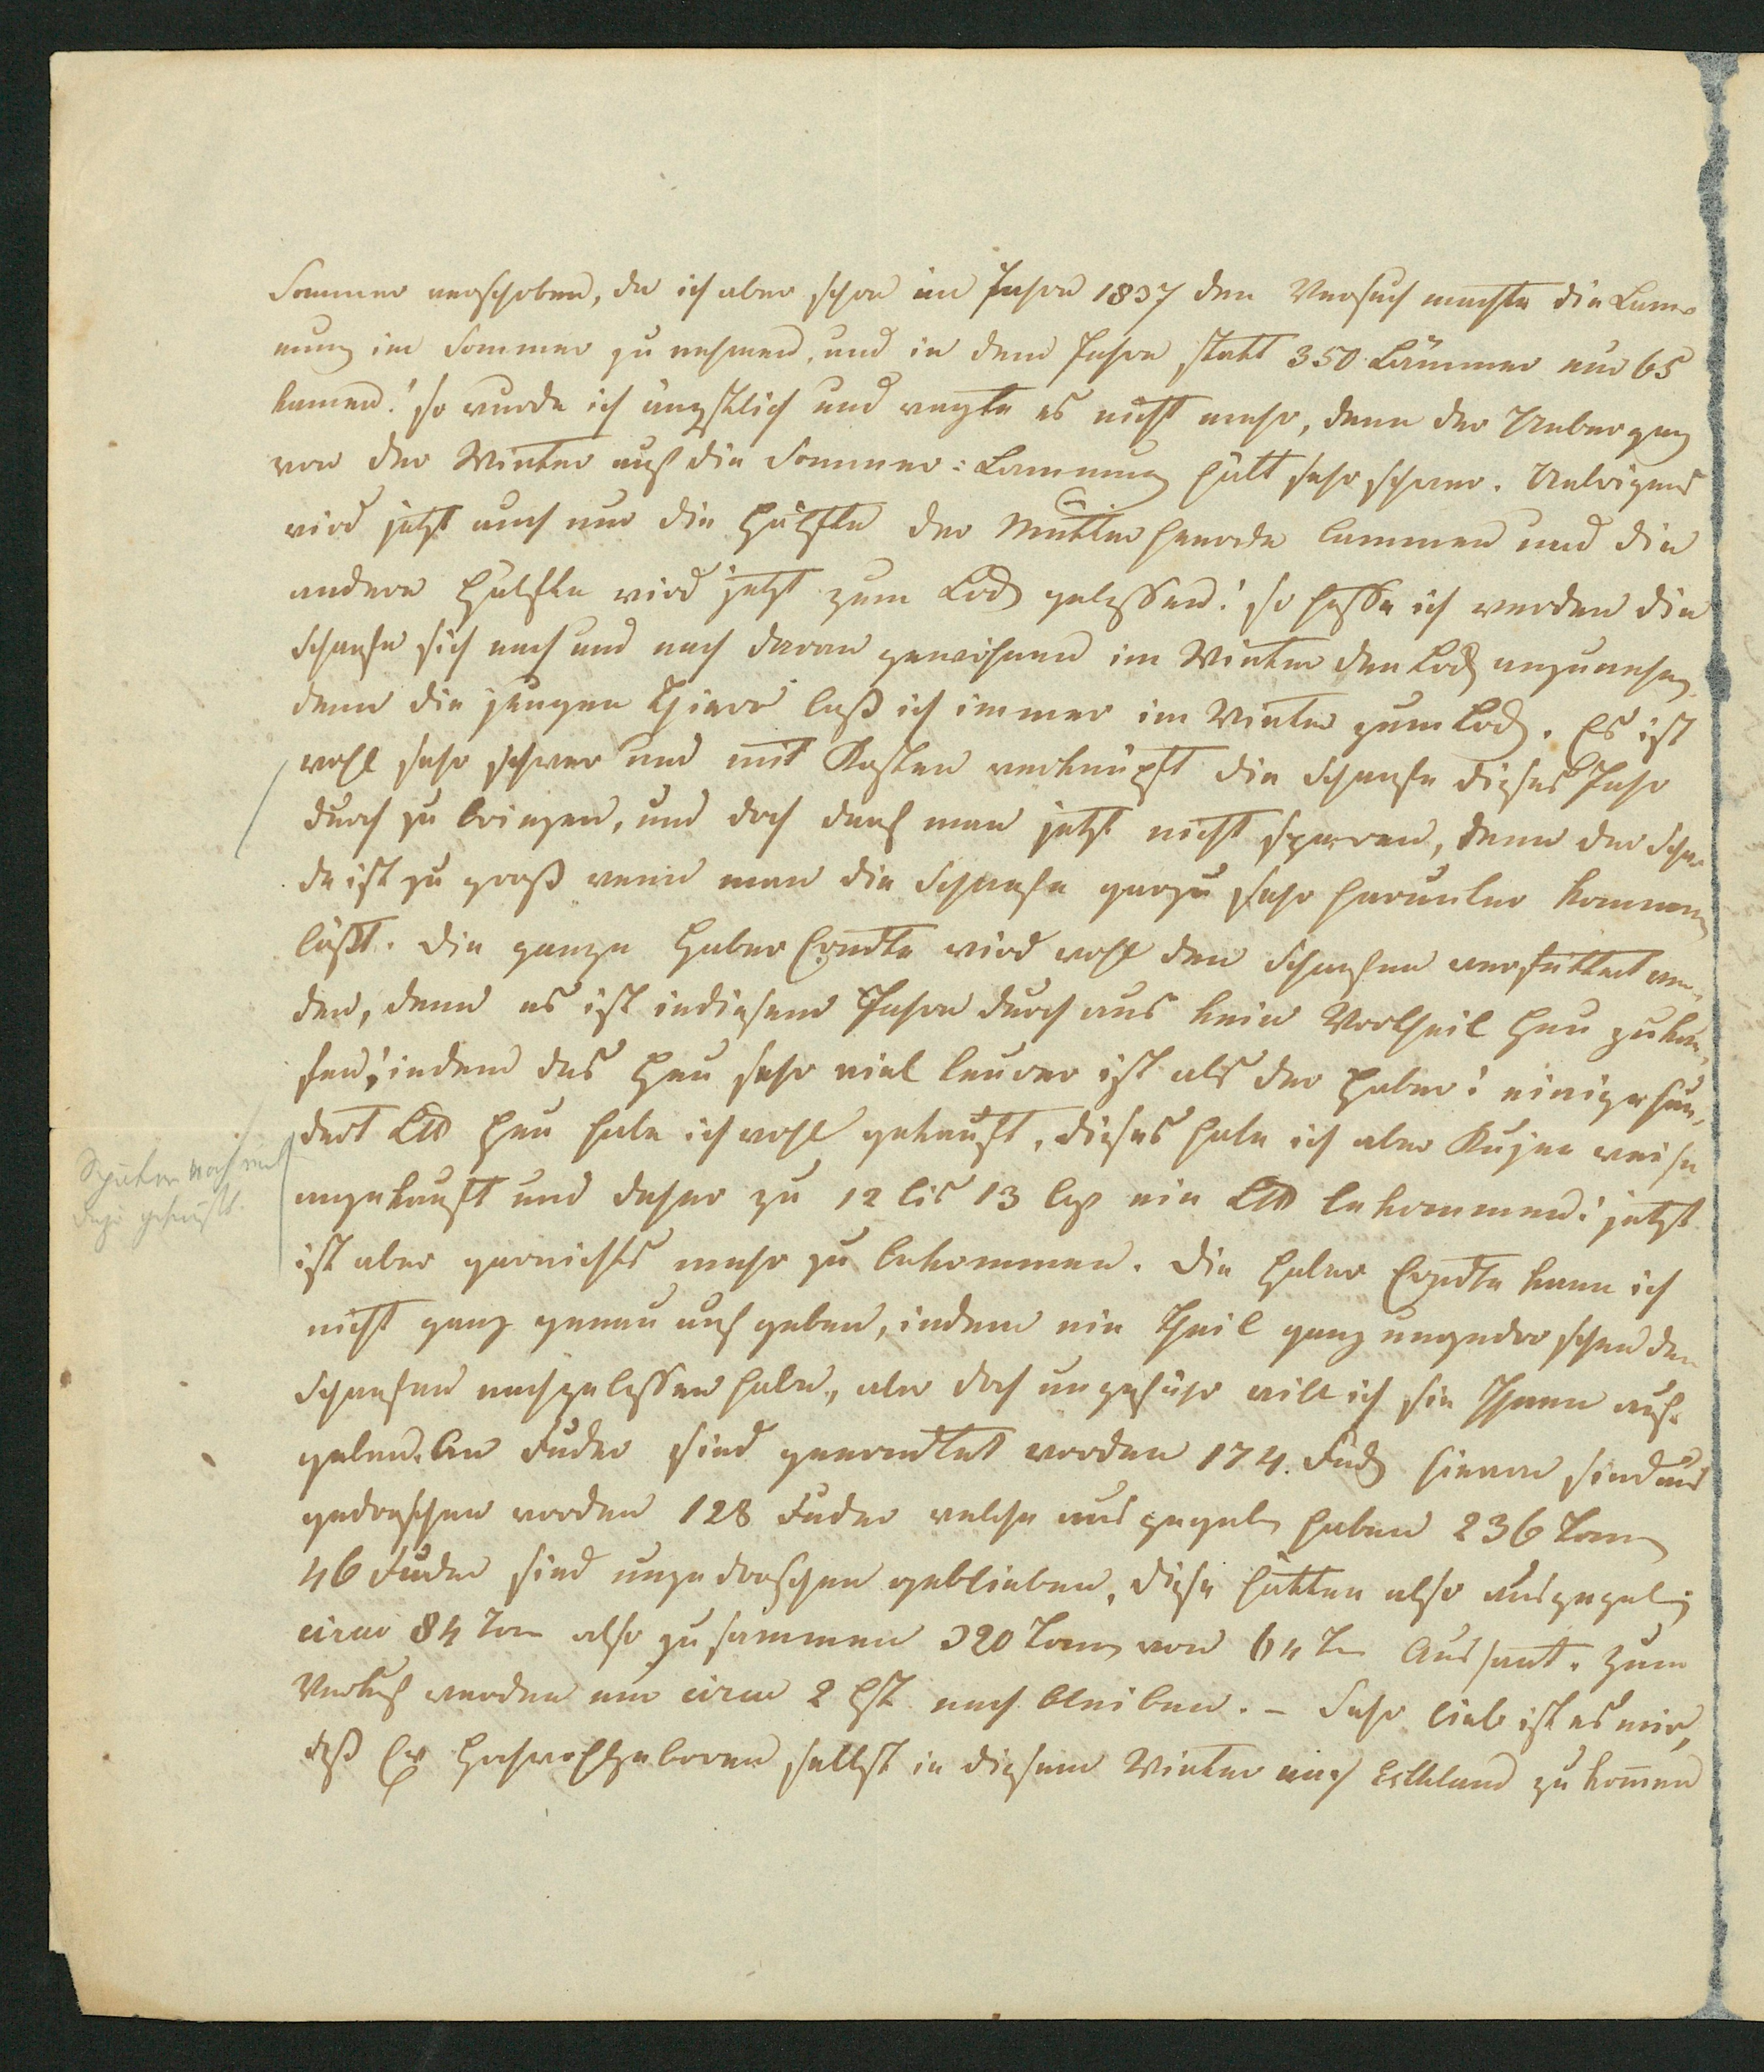 Sommer verschoben, da ich aber schon im Jahre 1837 den Versuch machte die Lam-
mung im Sommer zu nehmen, und in dem Jahre statt 350 Lämmer nur 65
kamen! so wurde ich ängstlich und wagte es nicht mehr, denn der Uebergang
von der Winter auf die Sommer: Lammung hält sehr schwer. Uebrigens
wird jetzt auch nur die Hälfte der Mutterheerde lammen und die
andere Hälfte wird jetzt zum Bock gelassen! so hoffe ich werden die
Schaafe sich nach und nach daran gewöhnen im Winter den Bock anzunehmen
denn die jungen Thiere laß ich immer im Winter zum Bock. Es ist
wohl sehr schwer und mit Kosten verknüpft die Schaafe dieses Jahr
durch zu bringen, und doch darf man jetzt nicht sparen, denn der Scha-
de ist zu groß wenn man die Schaafe gar zu sehr herunter kommen
läßt. Die ganze Haber Erndte wird wohl den Schaafen verfüttert wer-
den, denn es ist in diesem Jahre durch aus kein Vortheil Heu zu kau-
fen, indem das Heu sehr viel teurer ist als der Haber! einige hun-
dert L℔ Heu habe ich wohl gekauft, dieses habe ich aber Kujen weise
angekauft und daher zu 12 bis 13 Cop ein L℔ bekommen! jetzt
ist aber garnichts mehr zu bekommen. Die Haber Erndte kann ich
nicht ganz genau auf geben, indem ein Theil ganz ungedroschen den
Schaafen nachgelassen habe, aber doch ungefähr will ich sie Ihnen auf-
geben. An Fuder sind geerndtet worden 174. Fud hievon sind aus
gedroschen worden 128 Fuder welche aus gegeben haben 236 Tonn
46 Fuder sind ungedroschen geblieben, diese hätten also ausgegeben
circa 84 Ton also zusammen 320 Tonn von 64 Tn Aussaat. Zum
Verkauf werden nur circa 2 Lst nach bleiben. – Sehr lieb ist es mir,
daß Ew Hochwohlgeboren selbst in diesem Winter nach Esthland zu kommen
Später noch viel
dazu gekauft.